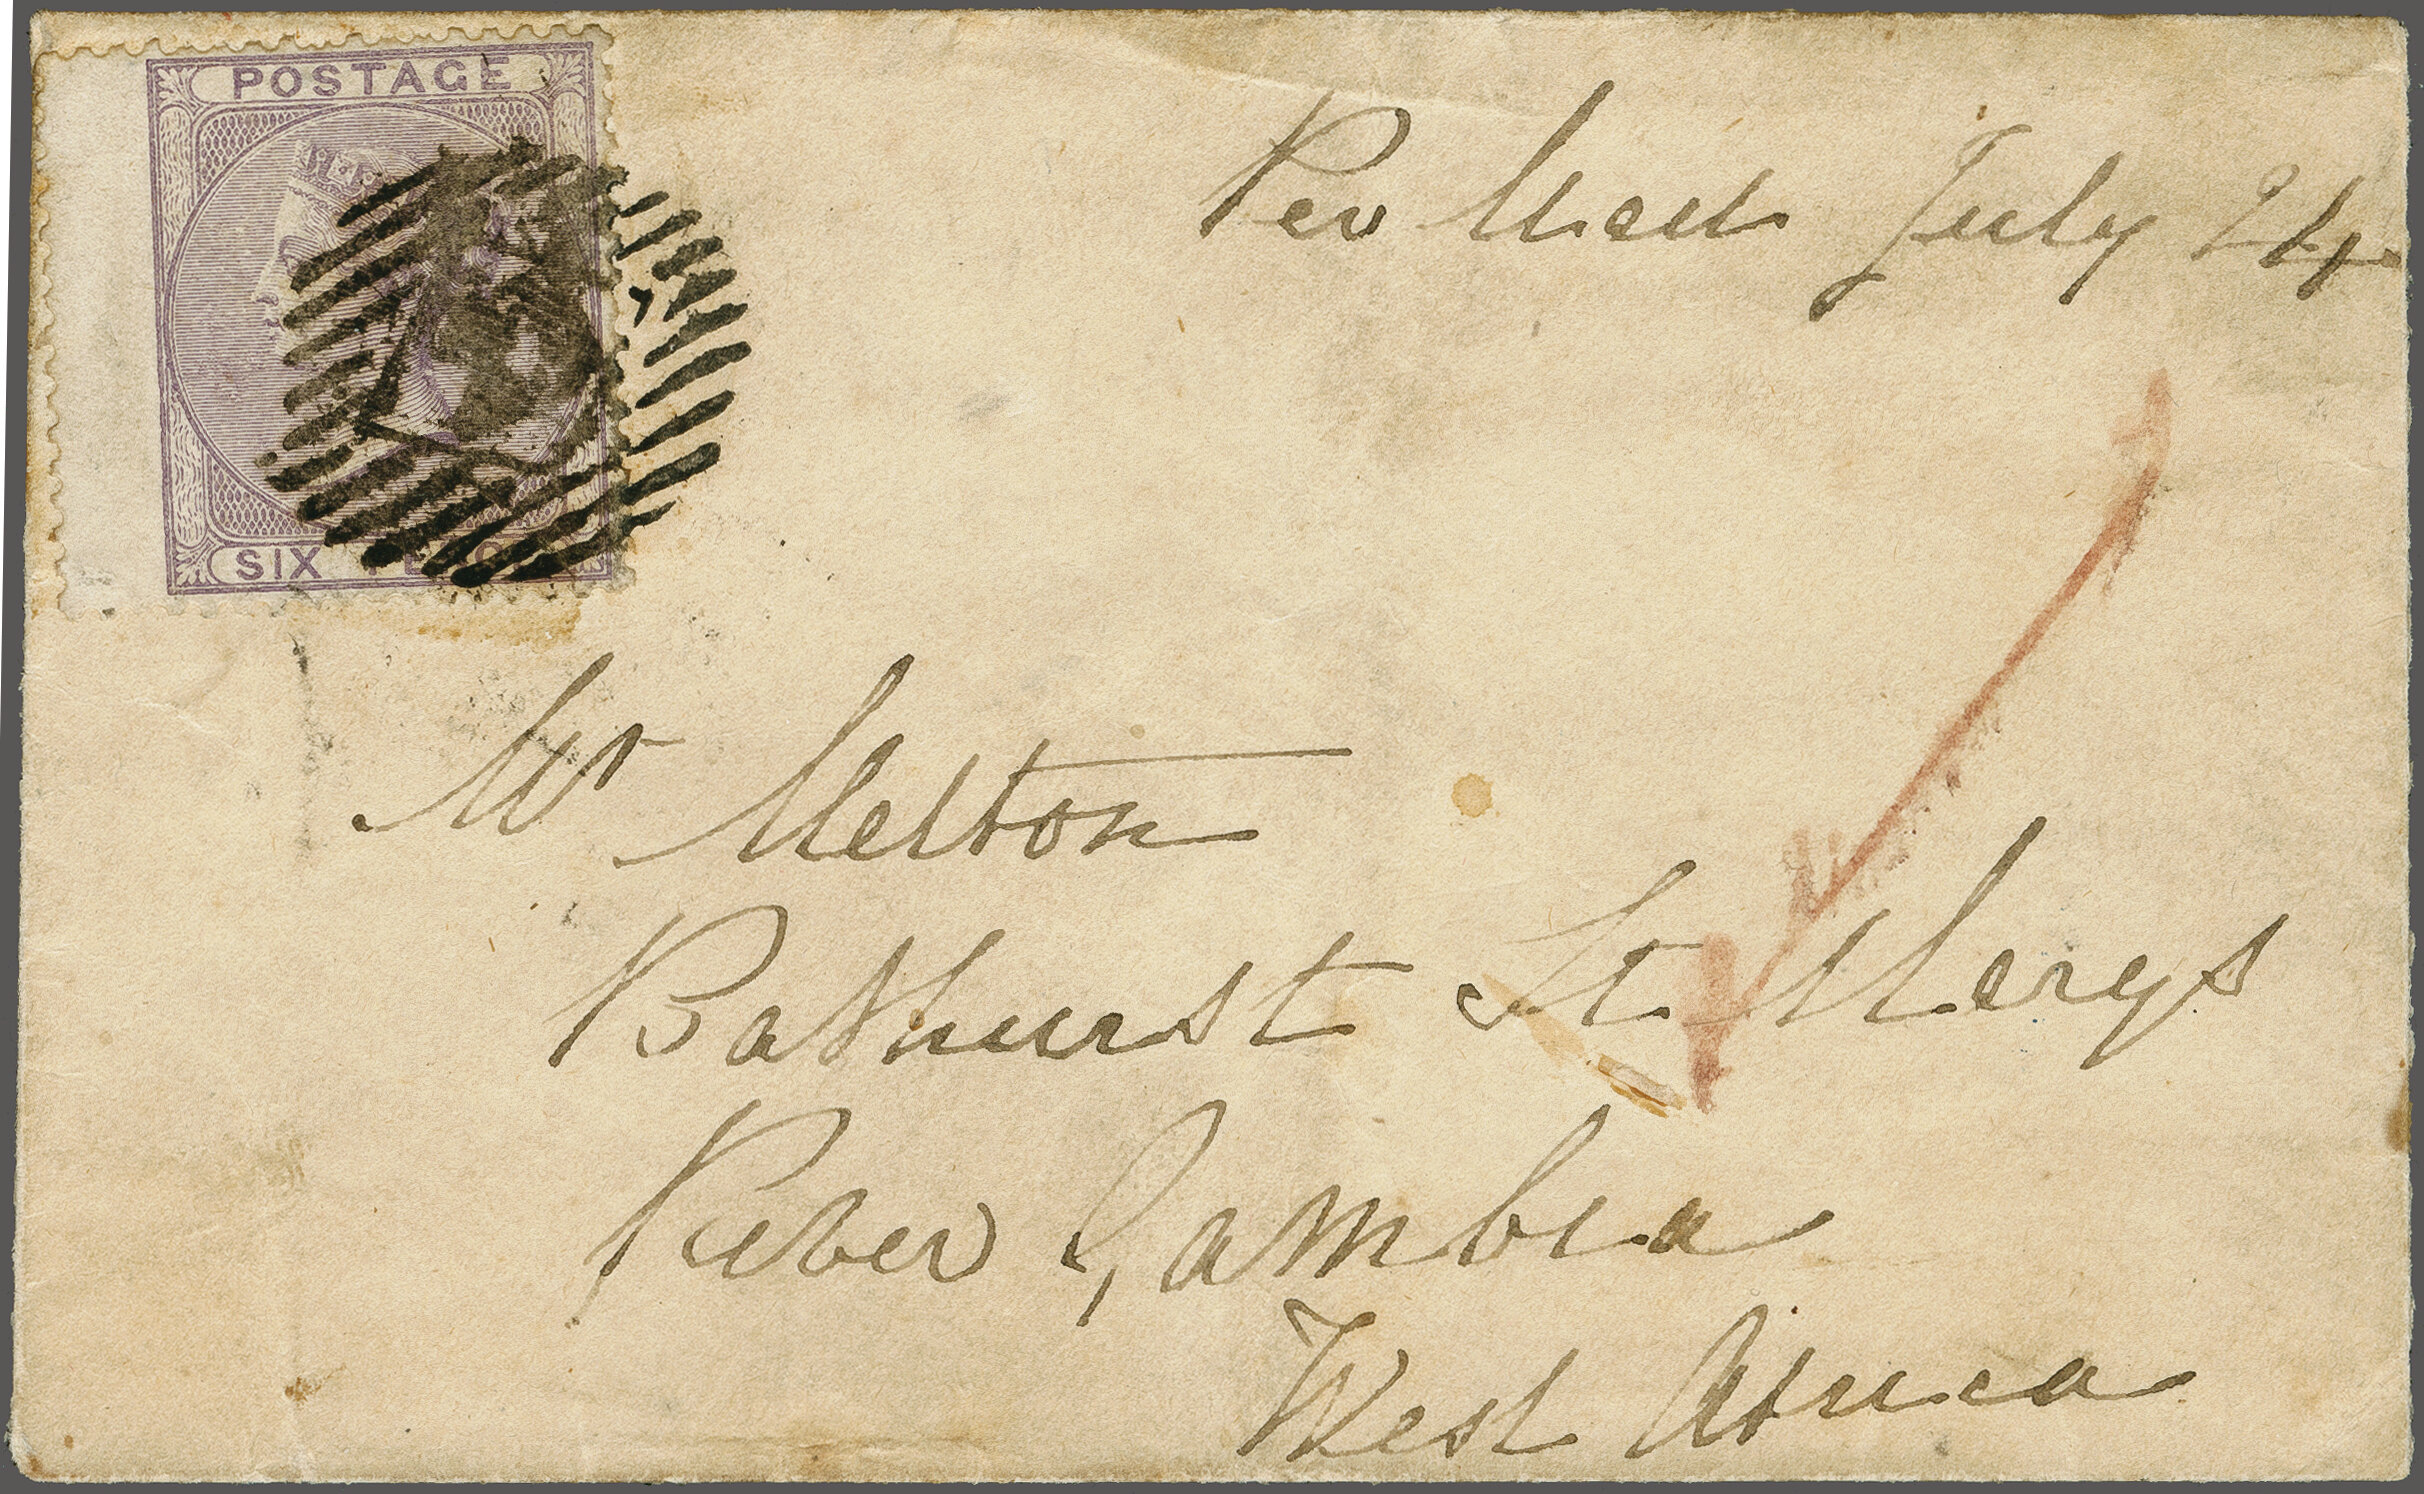 POSTAGE
SIX PENCE
Per Mail July 24
Mr Melton
Bathurst St Marys
River Gambia
West Africa